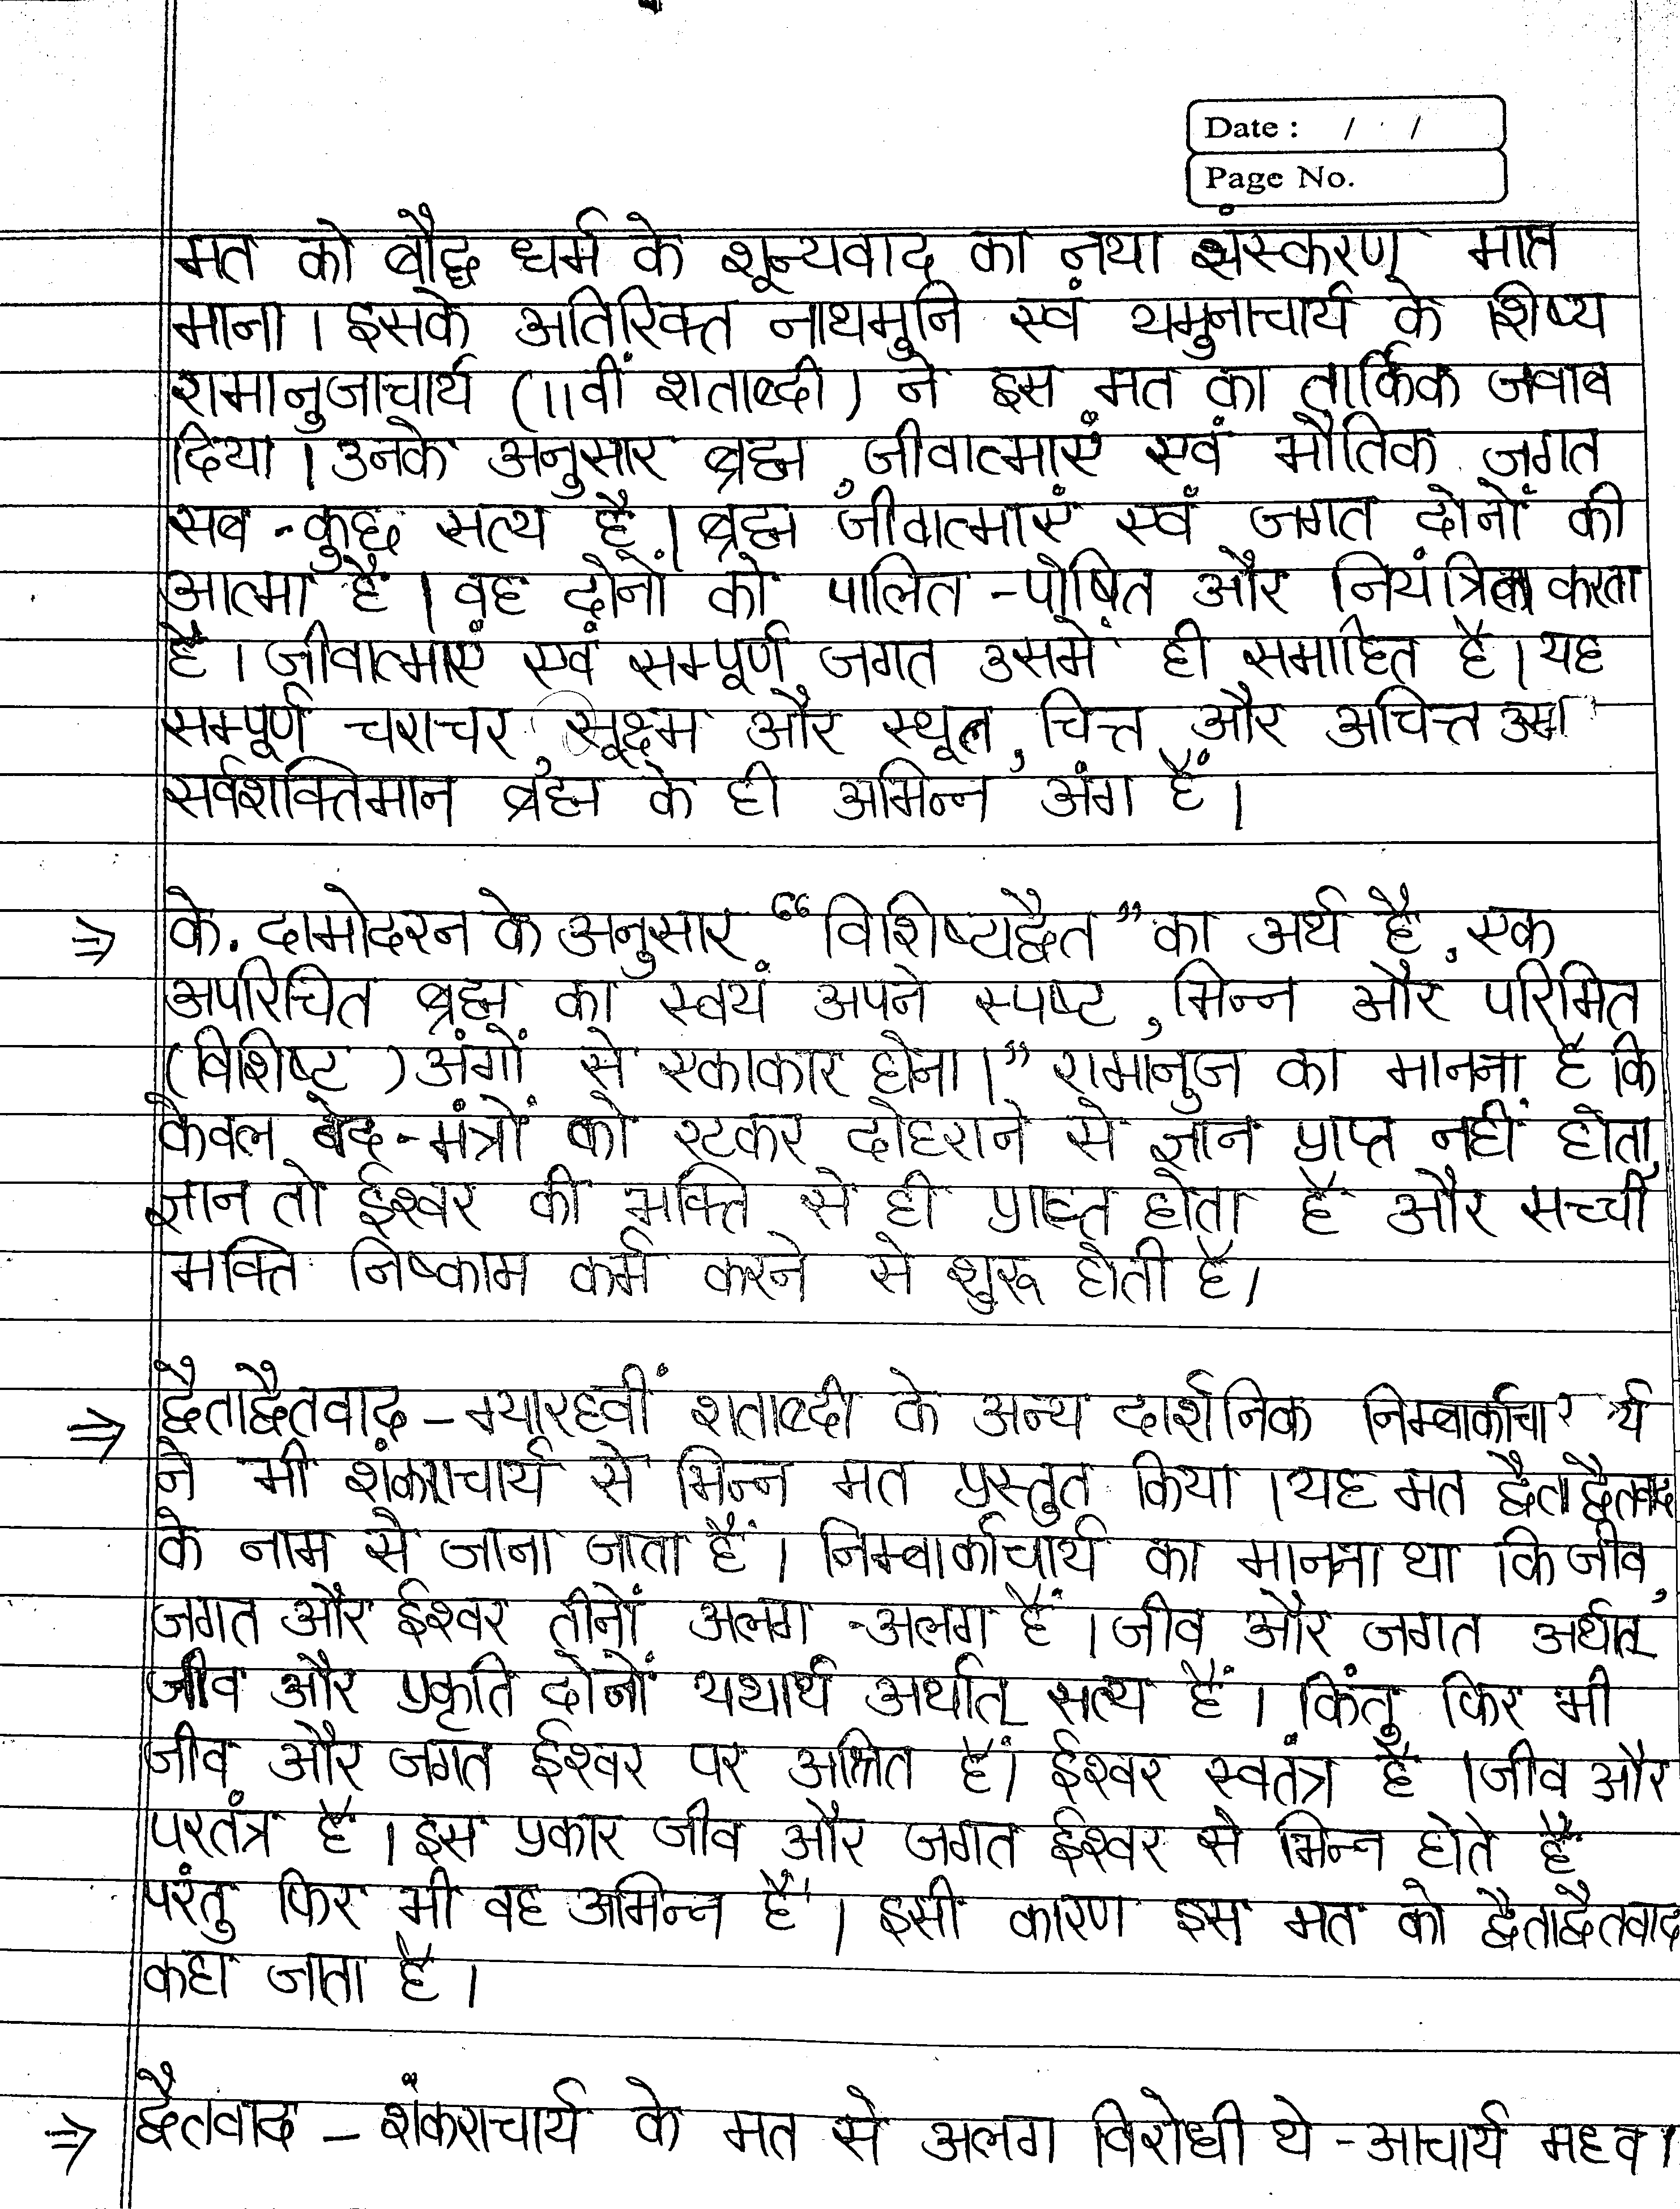 Date : / /
Page No.
मत को बौद्ध धर्म के शून्यवाद का नया संस्करण मात
माना। इसके अतिरिक्त नाथमुनि एवं यमुनाचार्य के शिष्य
रामानुजाचार्य (11वीं शताब्दी) ने इस मत का तार्किक जवाब
दिया। उनके अनुसार ब्रह्म, जीवात्माएं एवं भौतिक जगत
सब-कुछ सत्य है। ब्रह्म जीवात्माएं एवं जगत दोनों की
आत्मा है। वह दोनों को पालित-पोषित और नियंत्रित करता
है। जीवात्माएं एवं सम्पूर्ण जगत उसमें ही समाहित है। यह
सम्पूर्ण चराचर, सूक्ष्म और स्थूल, चित्त और अचित्त उस
सर्वशक्तिमान ब्रह्म के ही अभिन्न अंग हैं।
⇒ के. दामोदरन के अनुसार “विशिष्यद्वैत” का अर्थ है, एक
अपरिचित ब्रह्म का स्वयं अपने स्पष्ट, भिन्न और परिमित
(विशिष्ट) अंगों से एकाकार होना।” रामानुज का मानना है कि
केवल वेद-मंत्रों को रटकर दोहराने से ज्ञान प्राप्त नहीं होता,
ज्ञान तो ईश्वर की भक्ति से ही प्राप्त होता है और सच्ची
भक्ति निष्काम कर्म करने से शुरू होती है।
⇒ द्वैताद्वैतवाद - ग्यारहवीं शताब्दी के अन्य दार्शनिक निम्बार्काचार्य
ने भी शंकराचार्य से भिन्न मत प्रस्तुत किया। यह मत द्वैताद्वैतवाद
के नाम से जाना जाता है। निम्बार्काचार्य का मानना था कि जीव,
जगत और ईश्वर तीनों अलग-अलग हैं। जीव और जगत अर्थात्
जीव और प्रकृति दोनों यथार्थ अर्थात् सत्य हैं। किंतु फिर भी
जीव और जगत ईश्वर पर आश्रित हैं। ईश्वर स्वतंत्र है। जीव और
परतंत्र है। इस प्रकार जीव और जगत ईश्वर से भिन्न होते हैं
परंतु फिर भी वह अभिन्न हैं। इसी कारण इस मत को द्वैताद्वैतवाद
कहा जाता है।
⇒ द्वैतवाद - शंकराचार्य के मत से अलग विरोधी थे - आचार्य मध्व।